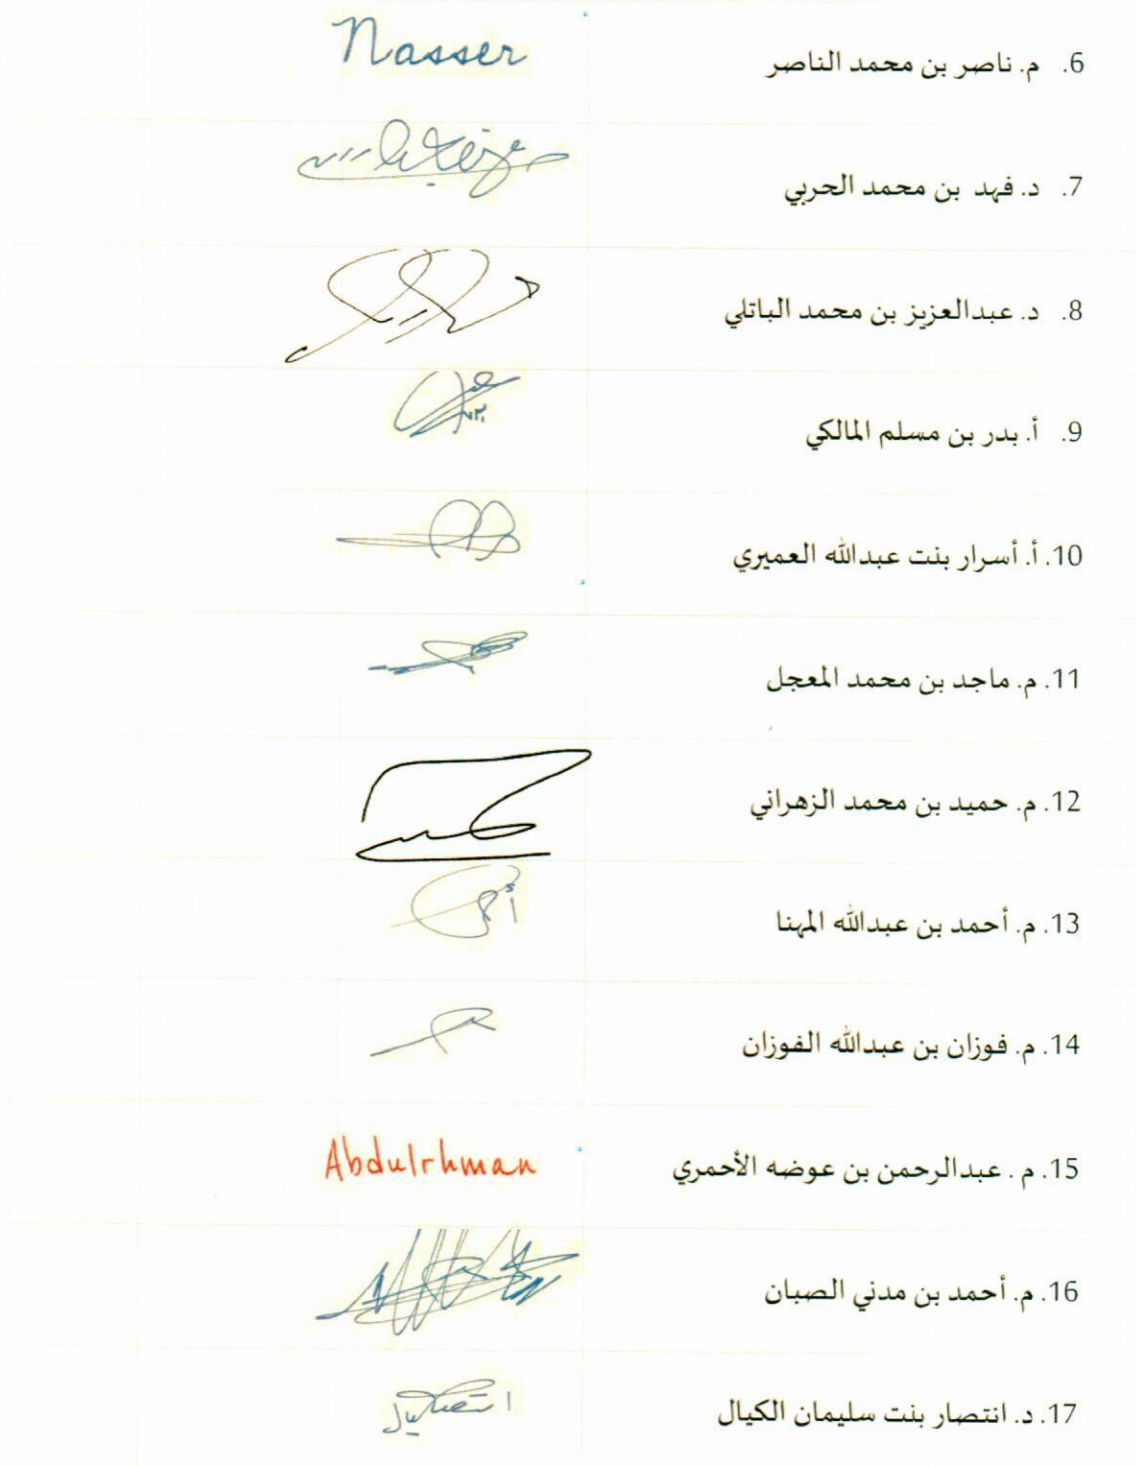 6. م. ناصر بن محمد الناصر Nasser
7. د. فهد بن محمد الحربي
8. د. عبدالعزيز بن محمد الباتلي
9. أ. بدر بن مسلم المالكي
10. أ. أسرار بنت عبدالله العميري
11. م. ماجد بن محمد المعجل
12. م. حميد بن محمد الزهراني
13. م. أحمد بن عبدالله المهنا
14. م. فوزان بن عبدالله الفوزان
15. م . عبدالرحمن بن عوضه الأحمري Abdulrhman
16. م. أحمد بن مدني الصبان
17. د. انتصار بنت سليمان الكيال